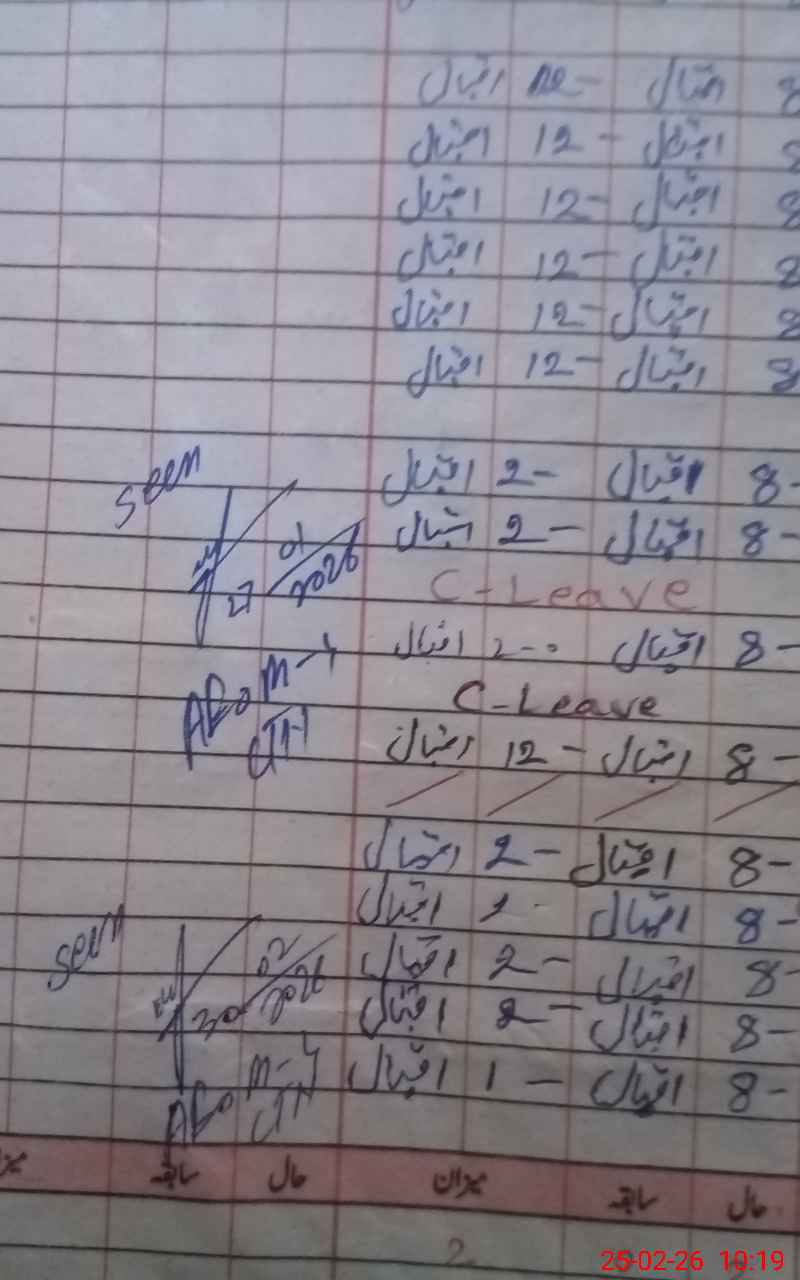 8 اقبال 12- اقبال
8 اقبال 12- اقبال
8 اقبال 12- اقبال
8 اقبال 12- اقبال
8 اقبال 12- اقبال
8 اقبال 12- اقبال
8- اقبال 2- اقبال
Seen
8- اقبال 2- اقبال
01
27 2026
C-Leave
8- اقبال 2- اقبال
AEO M-
C-Leave
8- اقبال 12- اقبال
8- اقبال 2- اقبال
8- اقبال 2- اقبال
Seen
8- اقبال 2- اقبال
02
2026
8- اقبال 2- اقبال
8- اقبال 1- اقبال
AEO M-
حال سابقہ میزان حال سابقہ
2
25-02-26 10:19